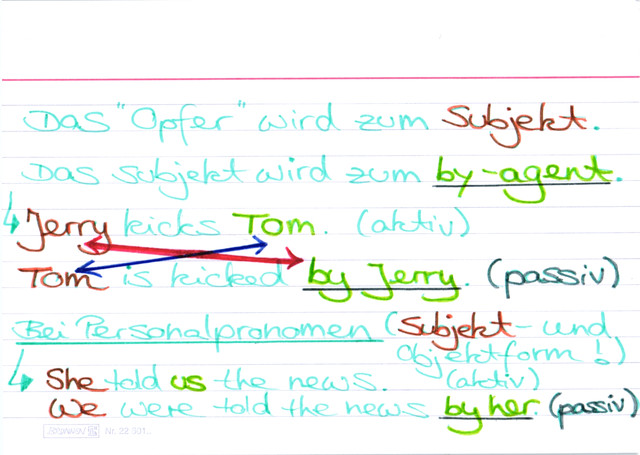 Das "Opfer" wird zum Subjekt.
Das Subjekt wird zum by-agent.
↳ Jerry kicks Tom. (aktiv)
Tom is kicked by Jerry. (passiv)
Bei Personalpronomen (Subjekt- und
Objektform!)
↳ She told us the news. (aktiv)
We were told the news by her. (passiv)
Nr. 22 301